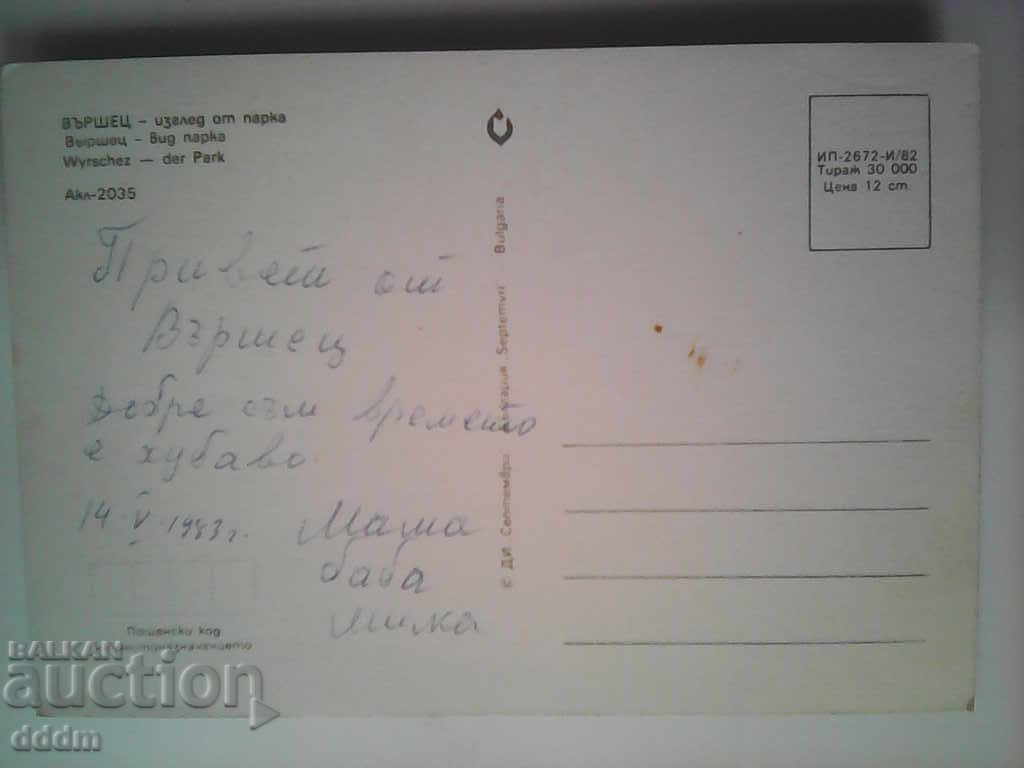 ВЪРШЕЦ – изглед от парка
Выршец – вид парка
Wyrschez — der Park
Акл-2035
Привет от
Вършец
Добре съм времето
е хубаво
14 V 1983 г.
Мама
баба
Милка
Пощенски код
местоназначението
© ДИ Септември България Septemvri Bulgaria
ИП-2672-И/82
Тираж 30 000
Цена 12 ст.
BALKAN
auction
dddm